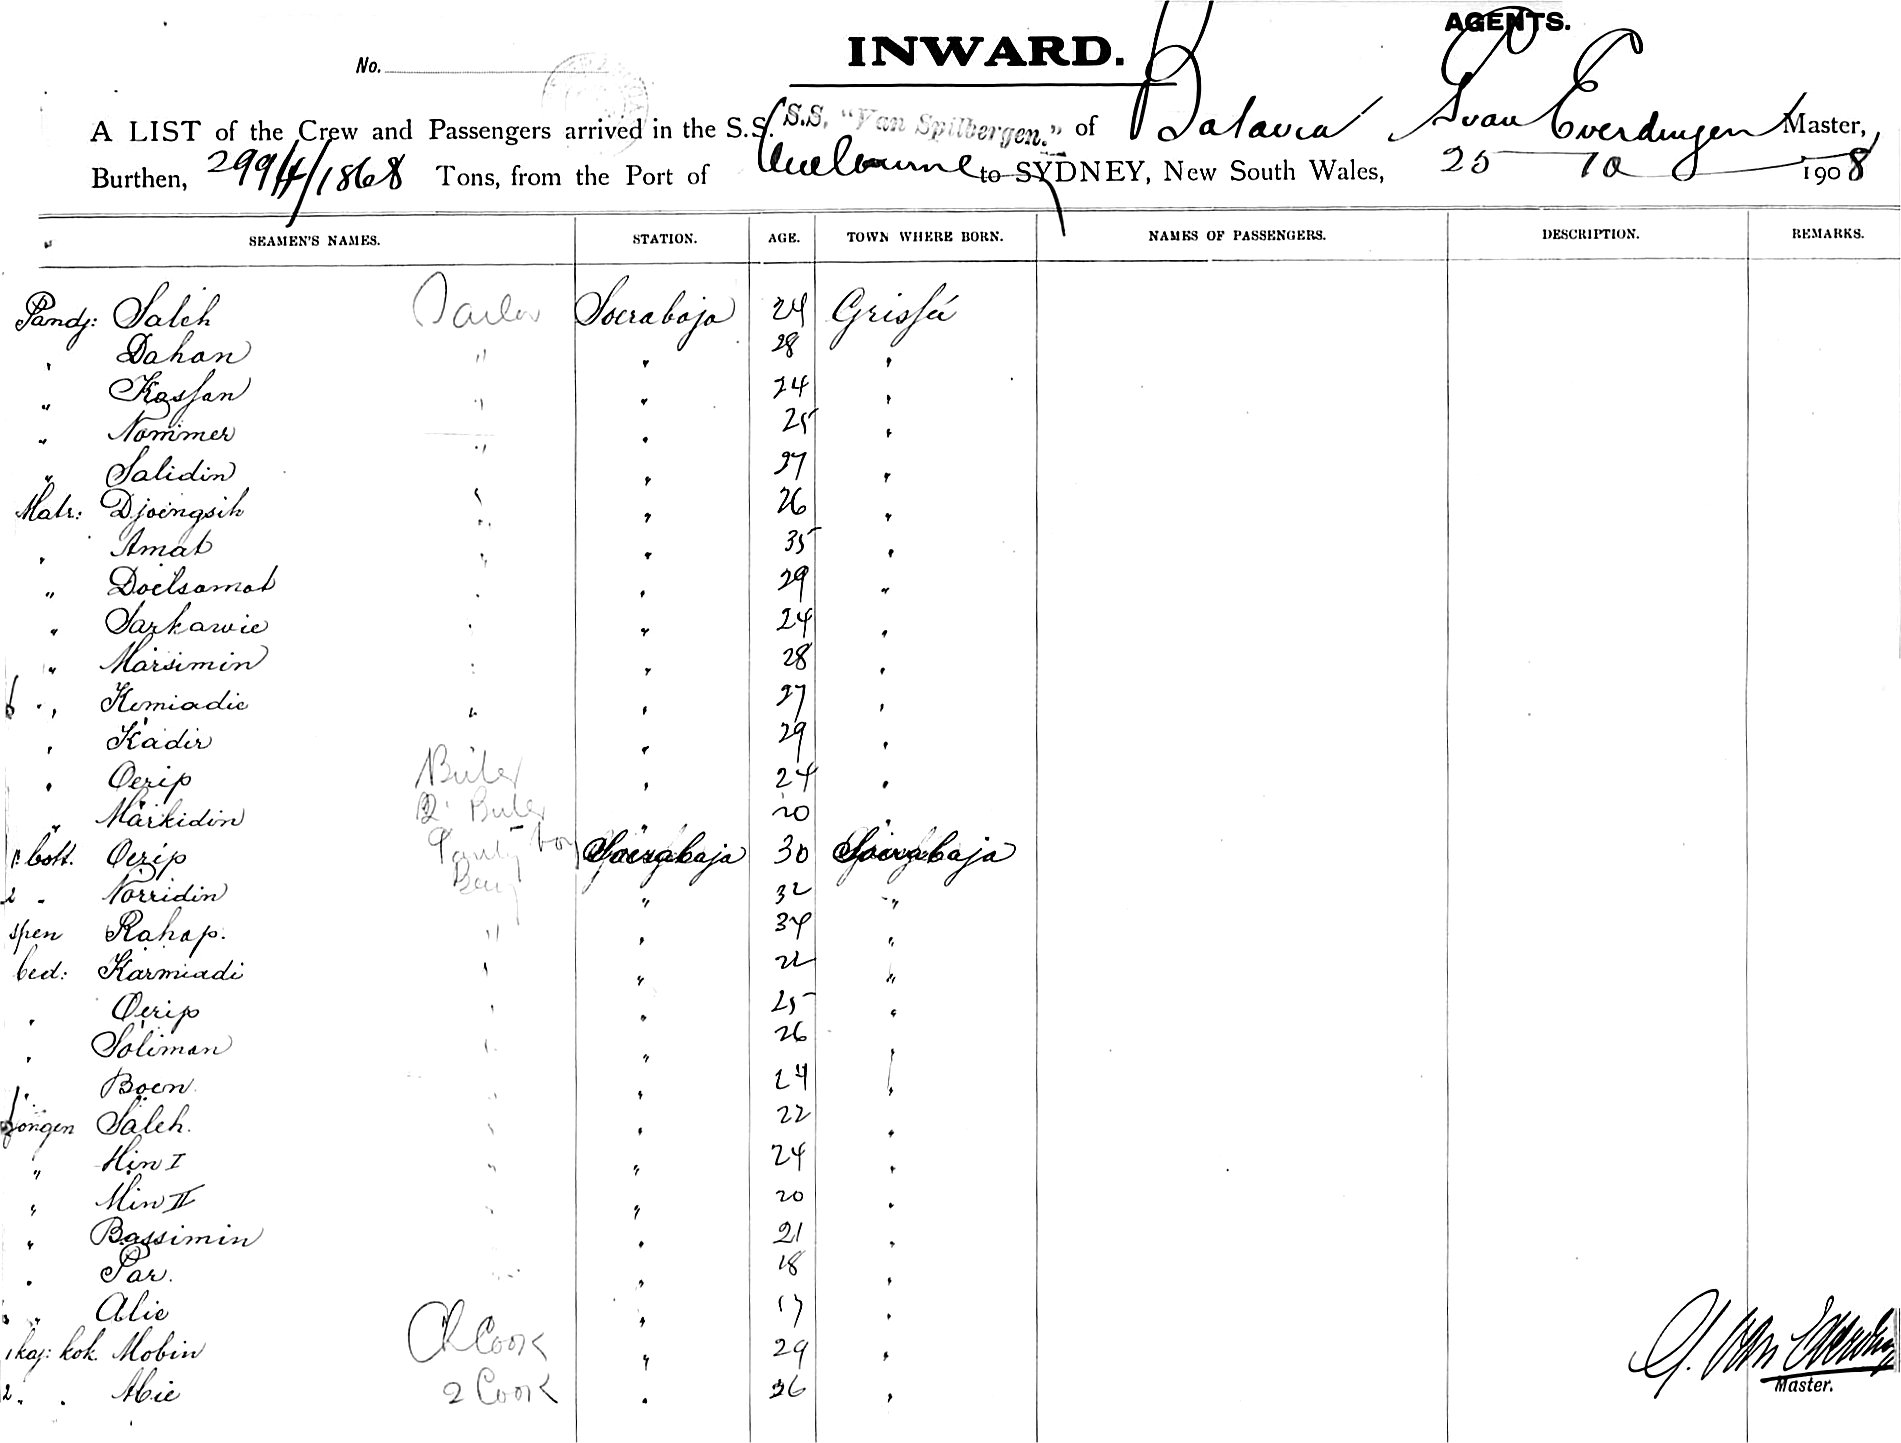 AGENTS.
INWARD.
No.
A LIST of the Crew and Passengers arrived in the S.S. S.S. "Van Spilbergen." of Batavia G van Everdingen Master,
Burthen, 2994/1868 Tons, from the Port of Melbourne to SYDNEY, New South Wales, 25 10 1908
SEAMEN'S NAMES. STATION. AGE. TOWN WHERE BORN. NAMES OF PASSENGERS. DESCRIPTION. REMARKS.
Pandj: Saleh Sailor Soerabaja 24 Grissée
" Dahan " " 28 "
" Kassan " " 24 "
" Nommer " " 25 "
" Salidin " 27 "
Matr: Djoengsih " " 26 "
" Amat " " 35 "
" Doelsamat " " 29 "
" Sarkawie " " 24 "
" Marsimin " " 28 "
" Kemiadie " " 27 "
" Kadir " 29 "
" Oerip Butler " 24 "
" Markidin 2 Butler " 20 "
1 bott. Oerip Pantry boy Soerabaja 30 Soerabaja
2 " Norridin Boy " 32 "
spen Rahap. " " 34 "
bed: Karmiadi " " 22 "
" Oerip " " 25 "
" Soliman " " 26 "
" Boen. " " 24 "
Jongen Saleh. " " 22 "
" Min I " " 24 "
" Min II " " 20 "
" Bassimin " " 21 "
" Par. " " 18 "
" Alie " 17 "
1 kaj: kok. Mobin Ch Cook " 29 "
2 " " Abie 2 Cook " 26 "
G. van Everdingen
Master.